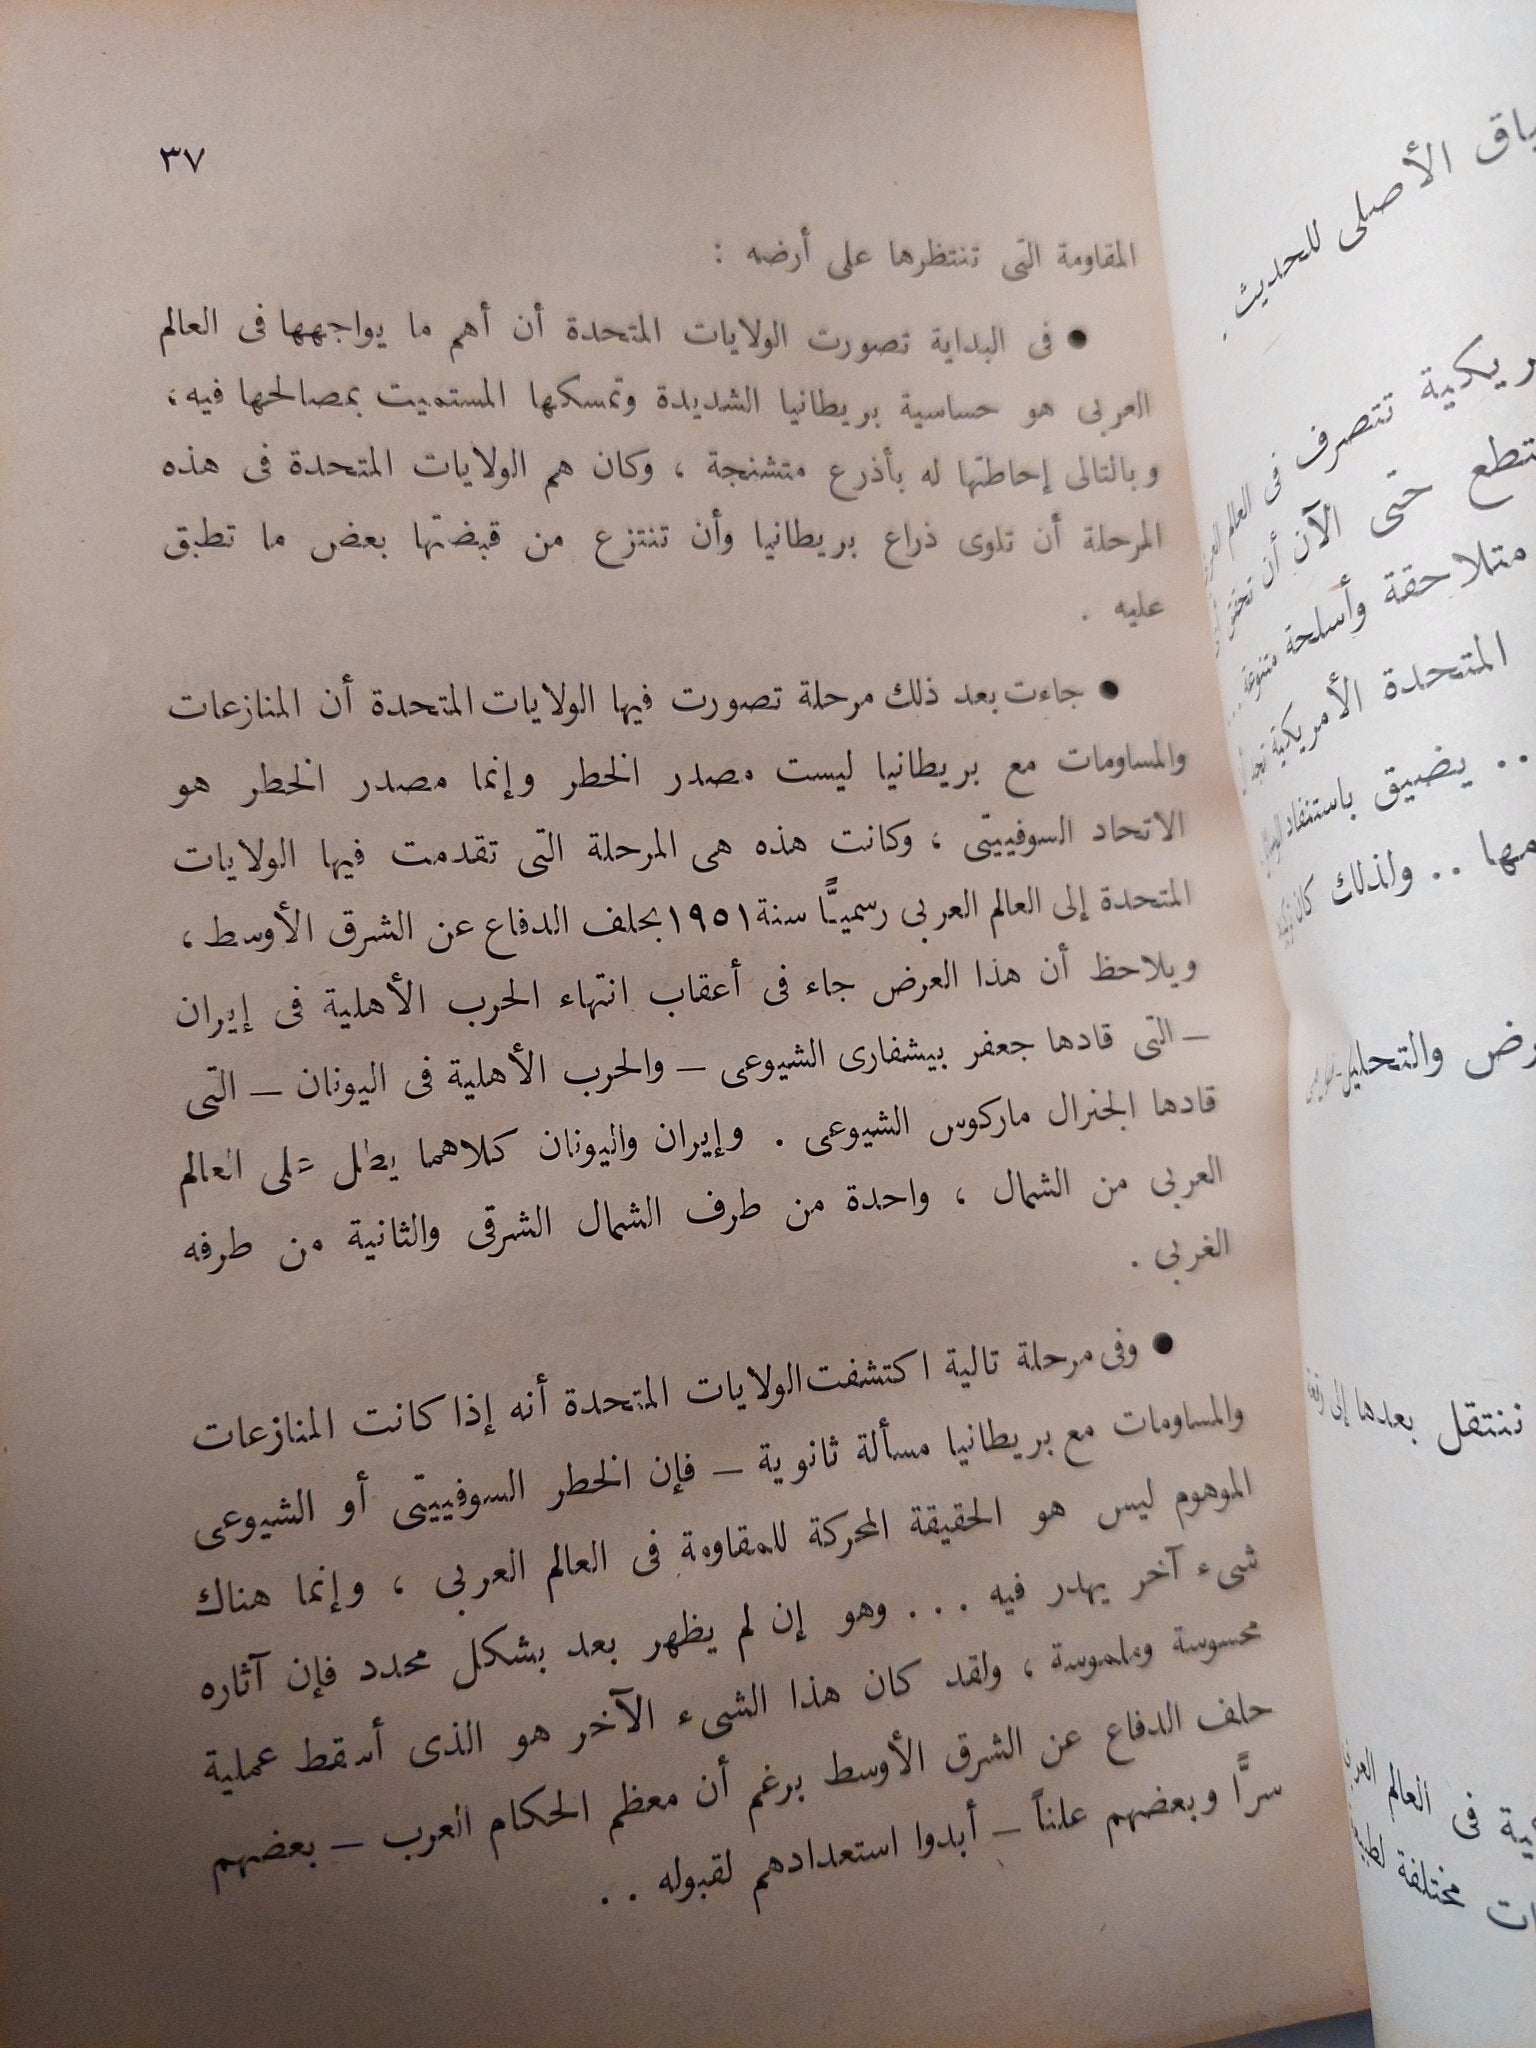 ٣٧
المقاومة التى تنتظرها على أرضه :
● فى البداية تصورت الولايات المتحدة أن أهم ما يواجهها فى العالم
العربى هو حساسية بريطانيا الشديدة وتمسكها المستميت بمصالحها فيه ،
وبالتالى إحاطتها له بأذرع متشنجة ، وكان هم الولايات المتحدة فى هذه
المرحلة أن تلوى ذراع بريطانيا وأن تنتزع من قبضتها بعض ما تطبق
عليه .
● جاءت بعد ذلك مرحلة تصورت فيها الولايات المتحدة أن المنازعات
والمساومات مع بريطانيا ليست مصدر الخطر وإنما مصدر الخطر هو
الاتحاد السوفييتى ، وكانت هذه هى المرحلة التى تقدمت فيها الولايات
المتحدة إلى العالم العربى رسميًّا سنة ١٩٥١ بحلف الدفاع عن الشرق الأوسط ،
ويلاحظ أن هذا العرض جاء فى أعقاب انتهاء الحرب الأهلية فى إيران
– التى قادها جعفر بيشفارى الشيوعى – والحرب الأهلية فى اليونان – التى
قادها الجنرال ماركوس الشيوعى . وإيران واليونان كلاهما يطل على العالم
العربى من الشمال ، واحدة من طرف الشمال الشرقى والثانية من طرفه
الغربى .
● وفى مرحلة تالية اكتشفت الولايات المتحدة أنه إذا كانت المنازعات
والمساومات مع بريطانيا مسألة ثانوية – فإن الخطر السوفييتى أو الشيوعى
الموهوم ليس هو الحقيقة المحركة للمقاومة فى العالم العربى ، وإنما هناك
شىء آخر يهدر فيه ... وهو إن لم يظهر بعد بشكل محدد فإن آثاره
محسوسة وملموسة ، ولقد كان هذا الشىء الآخر هو الذى أسقط عملية
حلف الدفاع عن الشرق الأوسط برغم أن معظم الحكام العرب – بعضهم
سرًّا وبعضهم علناً – أبدوا استعدادهم لقبوله ..
الأصلى للحديث .
تتصرف فى العالم
حتى الآن أن
متلاحقة وأسلحة متنوعة ...
المتحدة الأمريكية
.. يضيق باستنفاد
.. ولذلك كان
والتحليل
ننتقل بعدها إلى
فى العالم
مختلفة